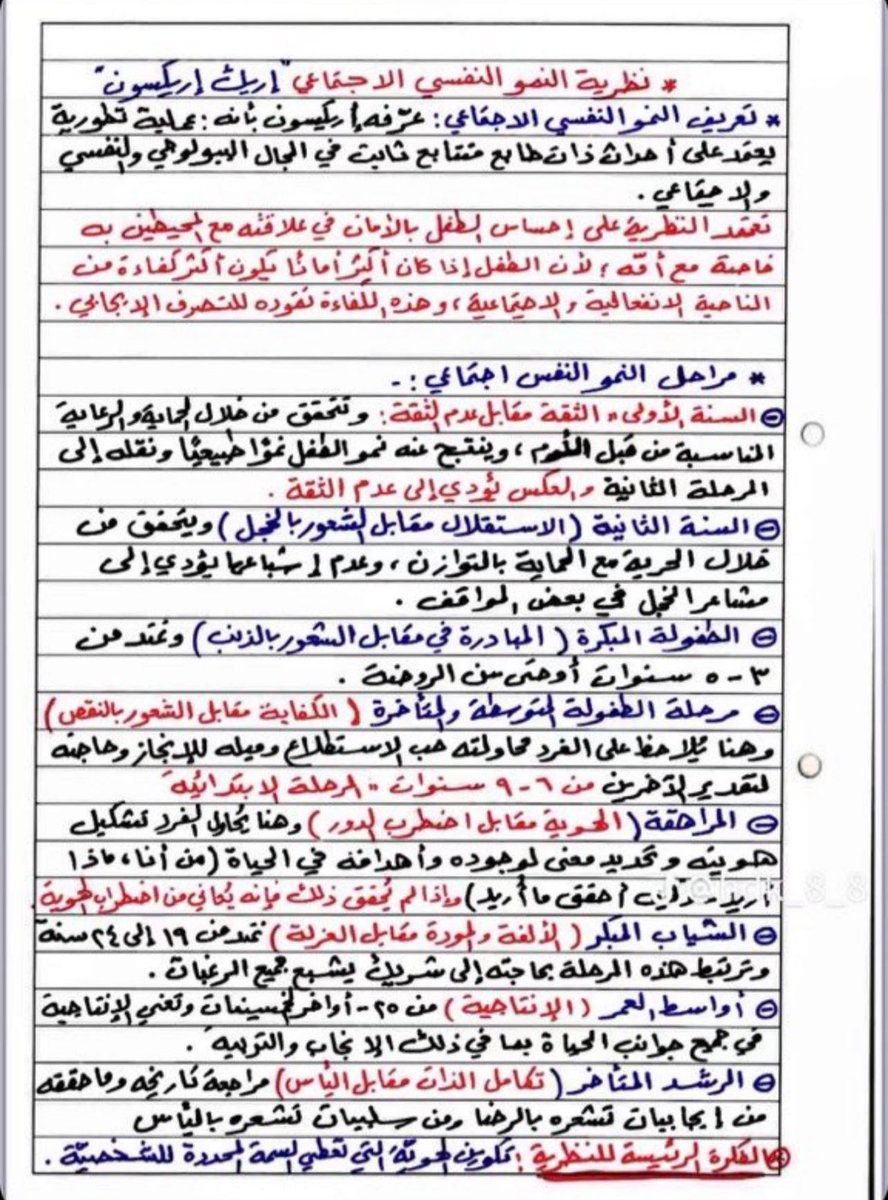 * نظرية النمو النفسي الاجتماعي "إريك إريكسون"
* تعريف النمو النفسي الاجتماعي: عرّفه إريكسون بأنه: عملية تطورية
يعتمد على أحداث ذات طابع متتابع ثابت في المجال البيولوجي والنفسي
والاجتماعي.
تعتمد النظرية على إحساس الطفل بالأمان في علاقته مع المحيطين به
خاصة مع أمّه؛ لأن الطفل إذا كان أكثر أمانًا يكون أكثر كفاءة من
الناحية الانفعالية والاجتماعية، وهذه الكفاءة تقوده للتصرف الإيجابي.
* مراحل النمو النفس اجتماعي:-
السنة الأولى "الثقة مقابل عدم الثقة: وتتحقق من خلال الحماية والرعاية
المناسبة من قبل الأم، وينتج عنه نمو الطفل نموًا طبيعيًا ونقله إلى
المرحلة الثانية والعكس يؤدي إلى عدم الثقة.
السنة الثانية (الاستقلال مقابل الشعور بالخجل) ويتحقق من
خلال الحرية مع الحماية بالتوازن، وعدم إشباعها يؤدي إلى
مشاعر الخجل في بعض المواقف.
الطفولة المبكرة (المبادرة في مقابل الشعور بالذنب) وتمتد من
٣-٥ سنوات أو حتى سن الروضة.
مرحلة الطفولة المتوسطة والمتأخرة (الكفاية مقابل الشعور بالنقص)
وهنا يُلاحظ على الفرد محاولته حب الاستطلاع وميله للإنجاز وحاجته
لتقدير الآخرين من ٦-٩ سنوات "المرحلة الابتدائية"
المراهقة (الهوية مقابل اضطرب الدور) وهنا يُحاول الفرد تشكيل
هويته وتحديد معنى لوجوده وأهدافه في الحياة (من أنا، ماذا
أريد، كيف أحقق ما أريد) وإذا لم يُحقق ذلك فإنه يُعاني من اضطراب الهوية.
الشباب المبكر (الألفة والمودة مقابل العزلة) تمتد من ١٩ إلى ٢٤ سنة
وترتبط هذه المرحلة بحاجته إلى شريك يشبع جميع الرغبات.
أواسط العمر (الإنتاجية) من ٢٥-أواخر الخمسينات وتعني الإنتاجية
في جميع جوانب الحياة بما في ذلك الإنجاب والتربية.
الرشد المتأخر (تكامل الذات مقابل اليأس) مراجعة تاريخه وما حققه
من إيجابيات تشعره بالرضا ومن سلبيات تشعره باليأس
الفكرة الرئيسة للنظرية: تكوين الهويّة التي تعطي السمة المحددة للشخصيّة.